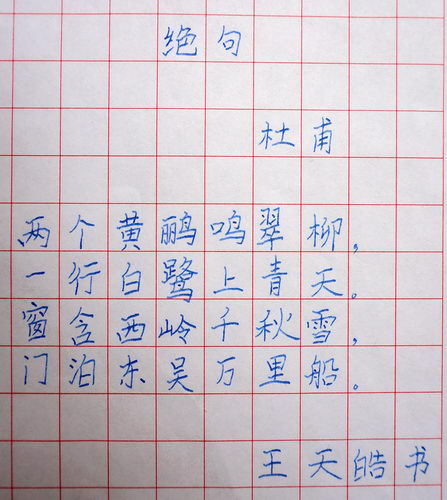 绝句
杜甫
两个黄鹂鸣翠柳，
一行白鹭上青天。
窗含西岭千秋雪，
门泊东吴万里船。
王天皓书